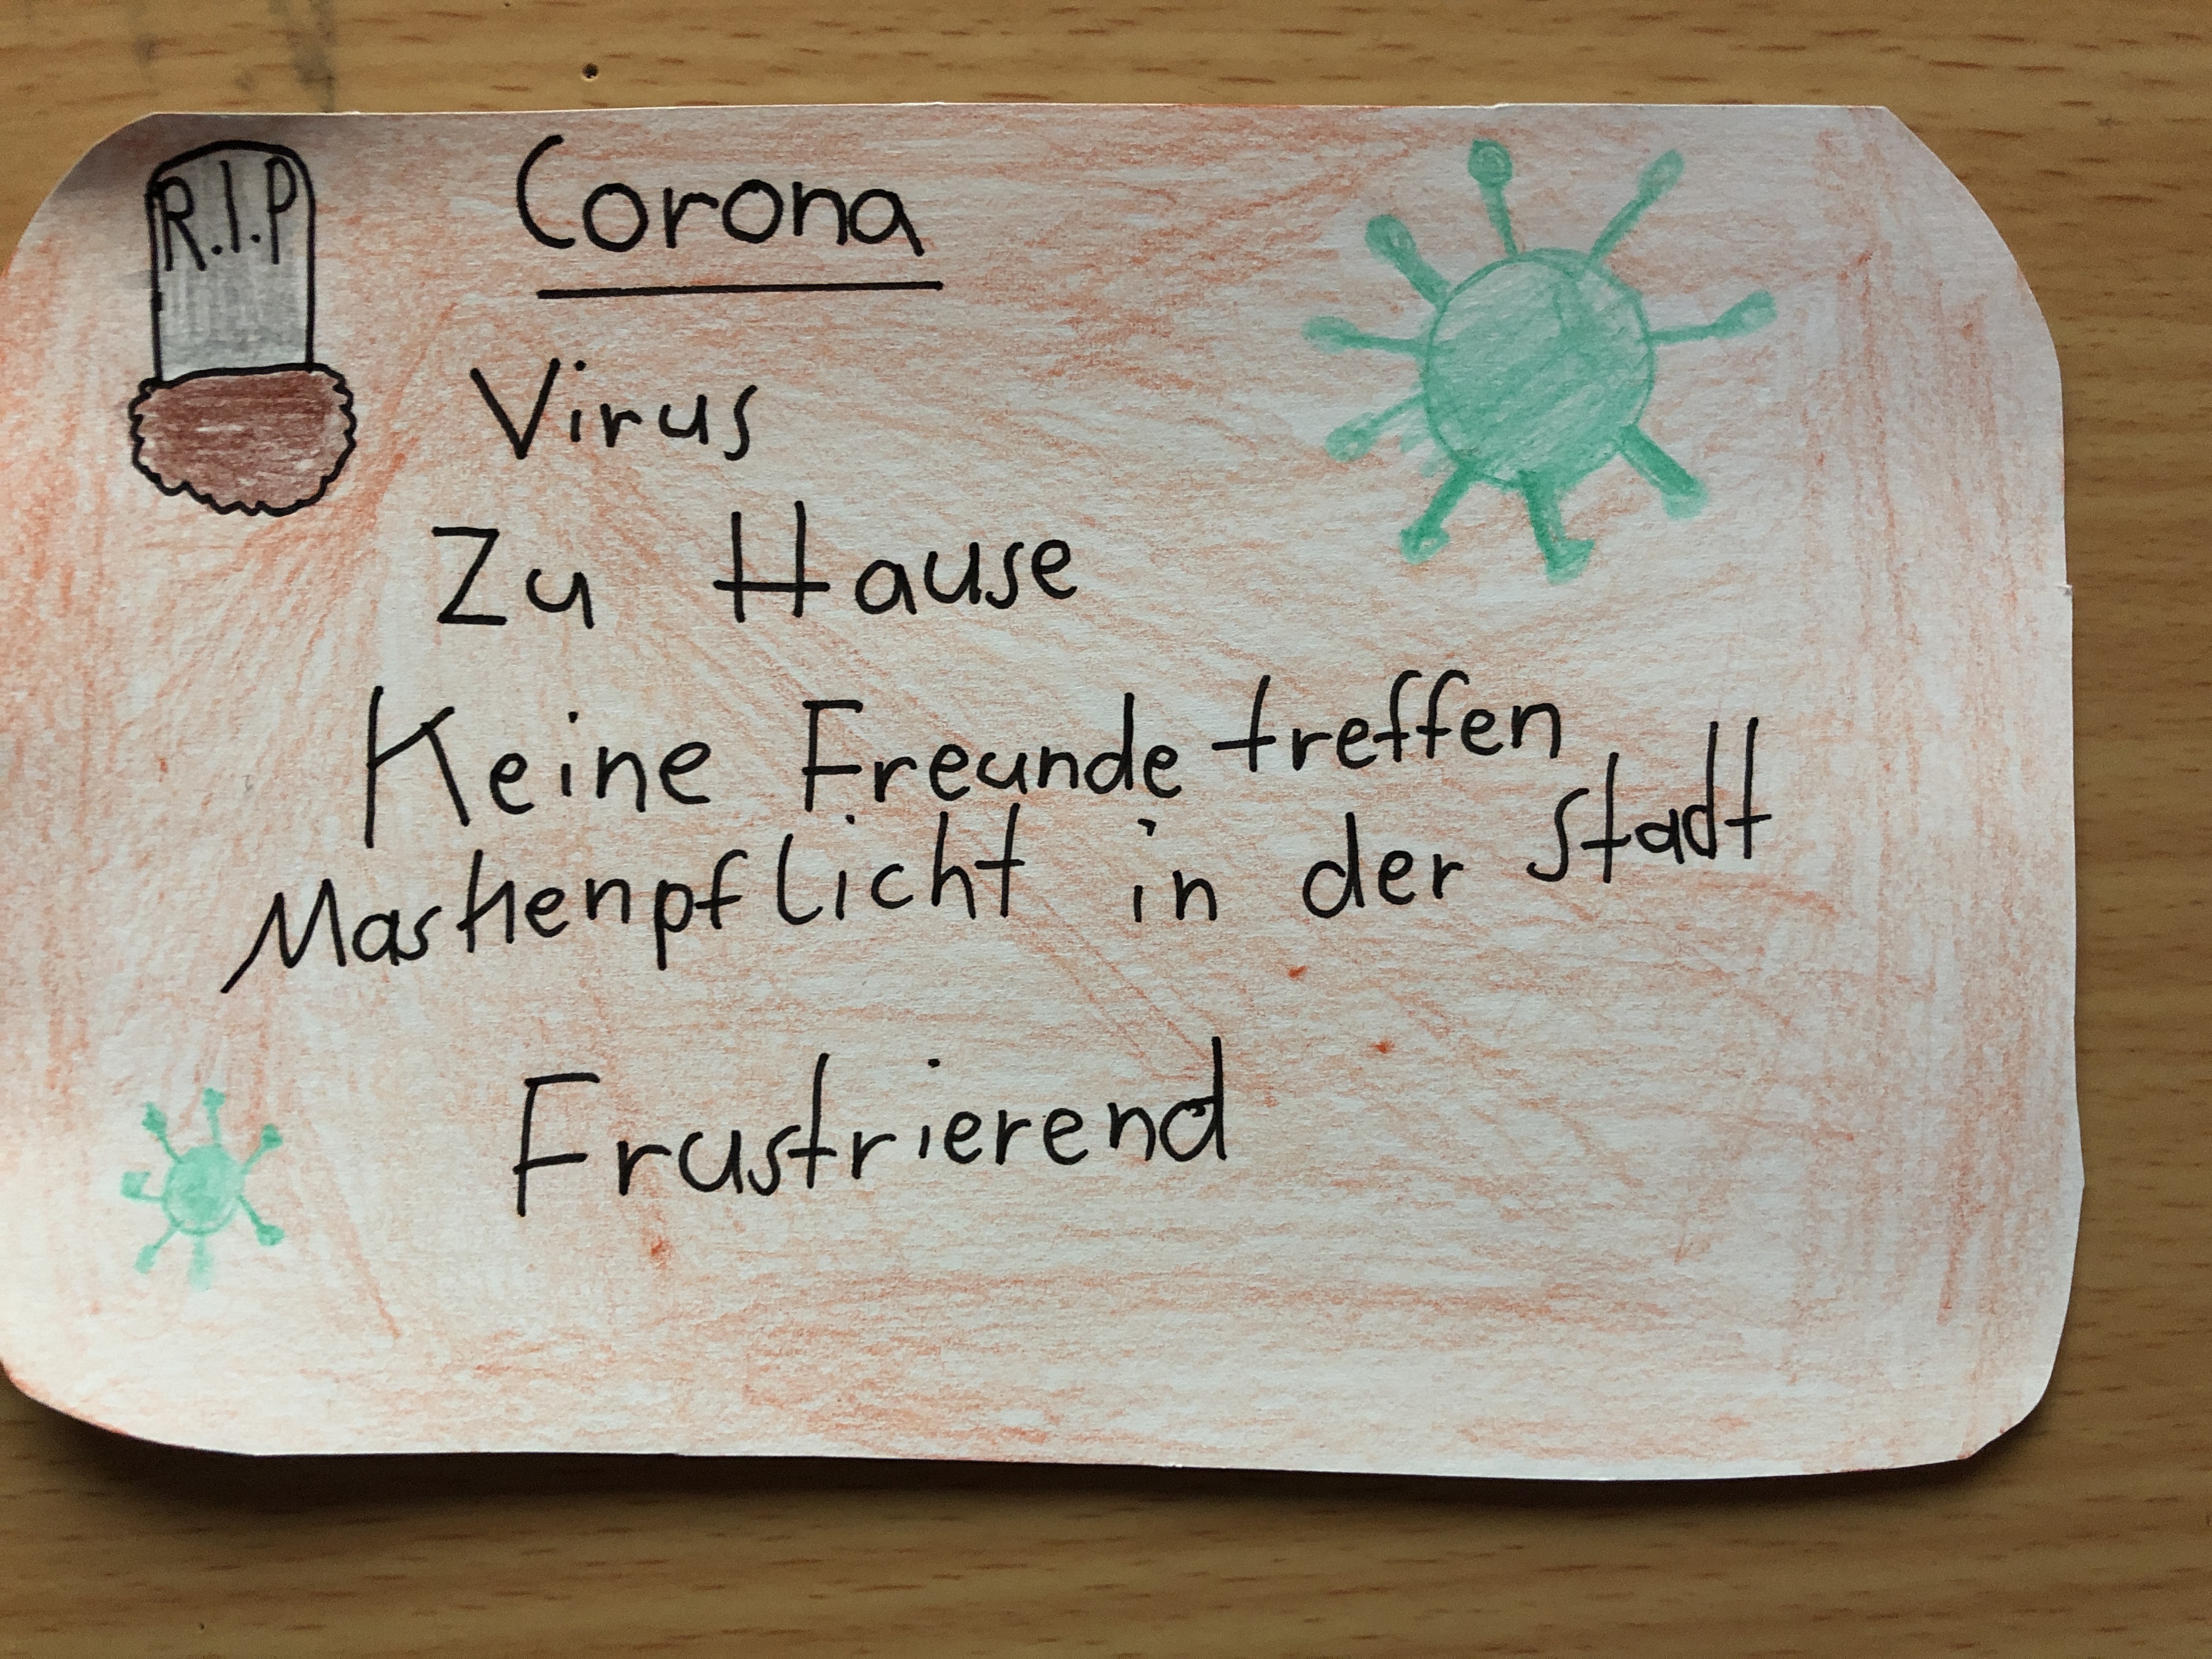 R.I.P
Corona
Virus
Zu Hause
Keine Freunde treffen
Maskenpflicht in der Stadt
Frustrierend